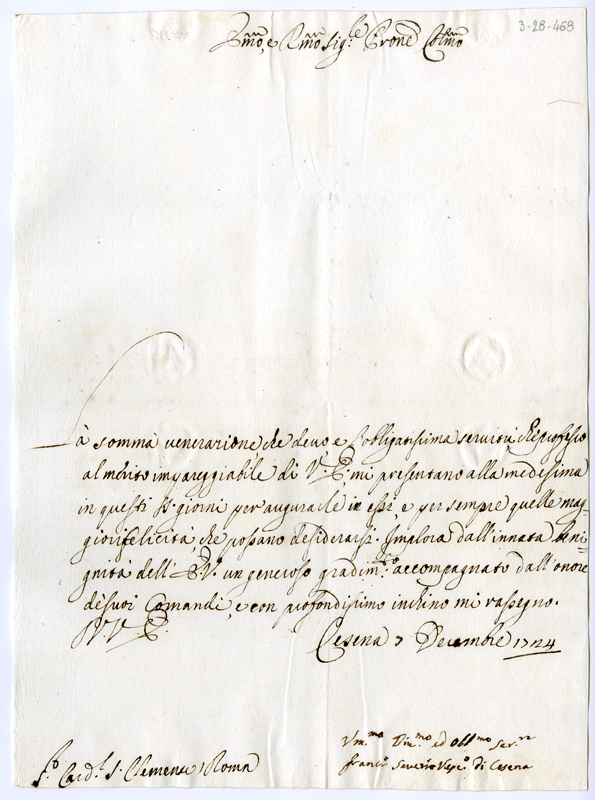 3-28-468
Emo, e Rmo Sig.re Prone Colmo
La somma venerazione che devo e l'obligatissima servitù che professo
al merito impareggiabile di V. E. mi presentano alla medesima
in questi SS. giorni per augurarle in essi, e per sempre quelle mag=
giori felicità, che possano desiderarsi. Implora dall'innata beni=
gnità dell' E.V. un generoso gradim.to accompagnato dall'onore
de suoi Comandi, e con profondissimo inchino mi rassegno.
V. E.
Cesena 7 Decembre 1724
Vm.mo Div.mo ed Obl.mo Ser.re
Franc.o Saverio Vesc.o di Cesena
S.r Card.l S. Clemente Roma